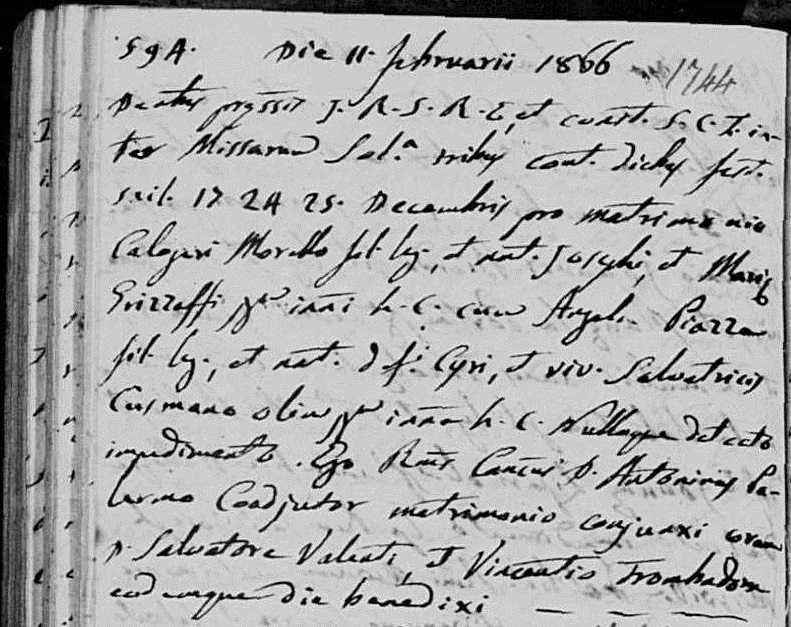 59A. Die 11. februarii 1866 1744
Denbus præssis J. R. S. R. E, et const. S. C. T. in-
ter Missarum Sol.a tribus cont. diebus fest.
scil. 17 24 25. Decembris pro matrimonio
Calogeri Morello fil. leg., et nat. Josephi, et Mariæ
Grizzaffi jug. h. C. cum Angela Piazza
fil. leg., et nat. d fi. Cyri, et viv. Salvatricis
Cusmano olim jug. h. C. Nulloque detecto
impedimento. Ego Rms Can.cus D. Antoninus Pa-
lermo Coadjutor matrimonio conjunxi coram
D. Salvatore Valenti, et Vincentio Trombadore
eodemque die benedixi